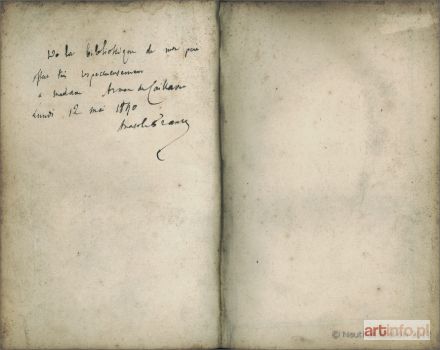 De la bibliothèque de mon père
offert très respectueusement
a madame Arman de Caillavet
lundi 12 mai 1890
Anatole France
© Neut
artinfo.pl